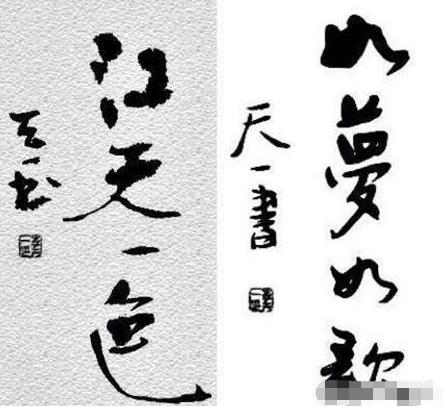 如夢如歌
天一書
江天一色
天一书